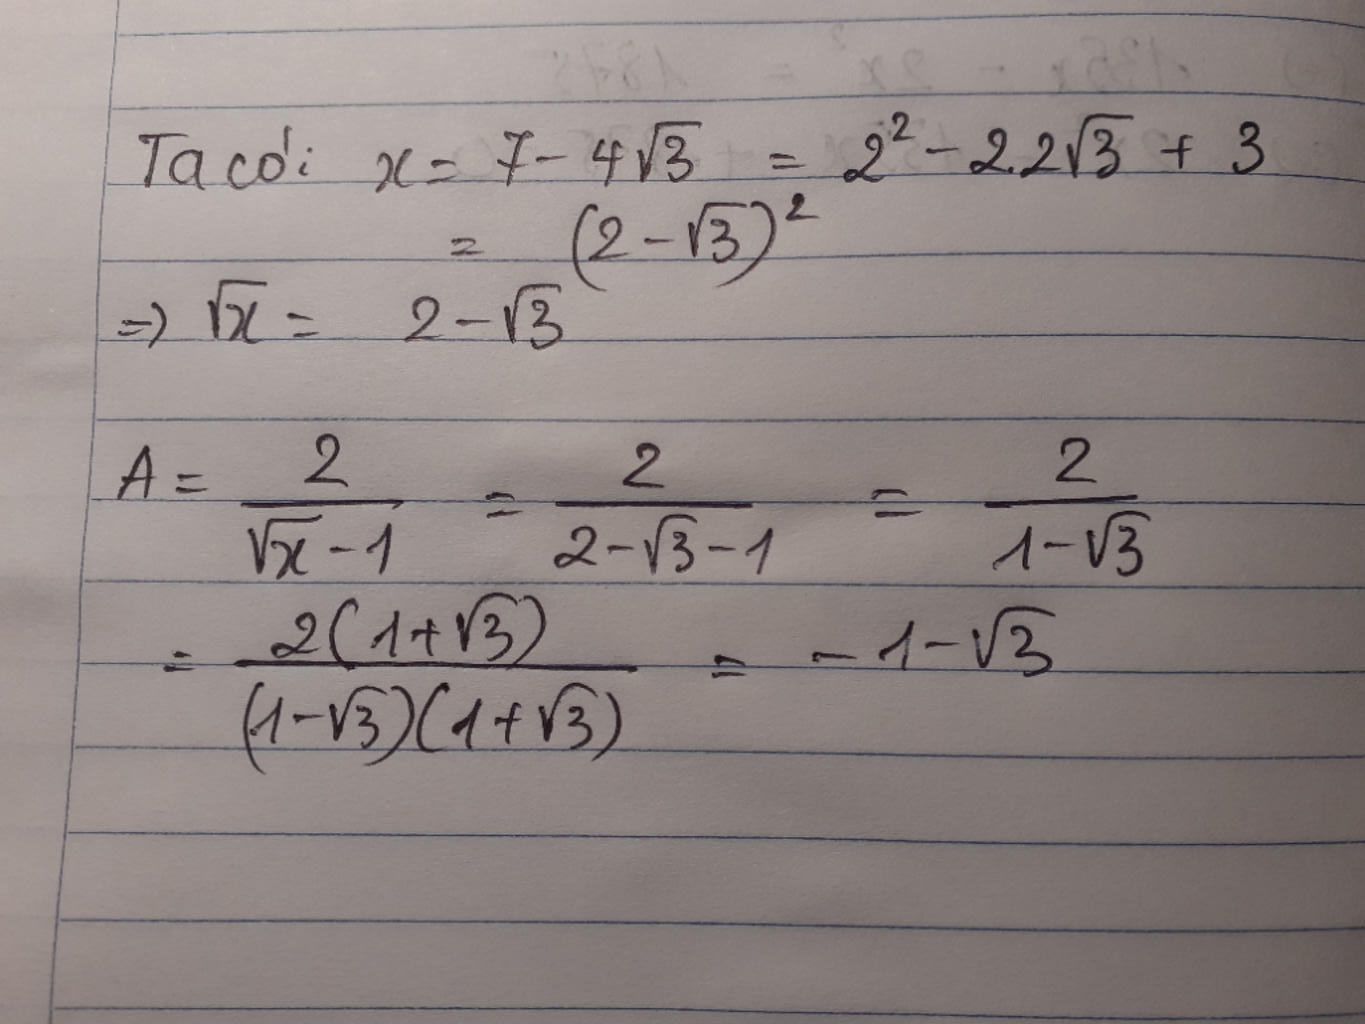 Ta có: x = 7 - 4√3 = 2² - 2.2√3 + 3
= (2 - √3)²
=> √x = 2 - √3
A = 2/(√x - 1) = 2/(2 - √3 - 1) = 2/(1 - √3)
= 2(1 + √3)/((1 - √3)(1 + √3)) = -1 - √3